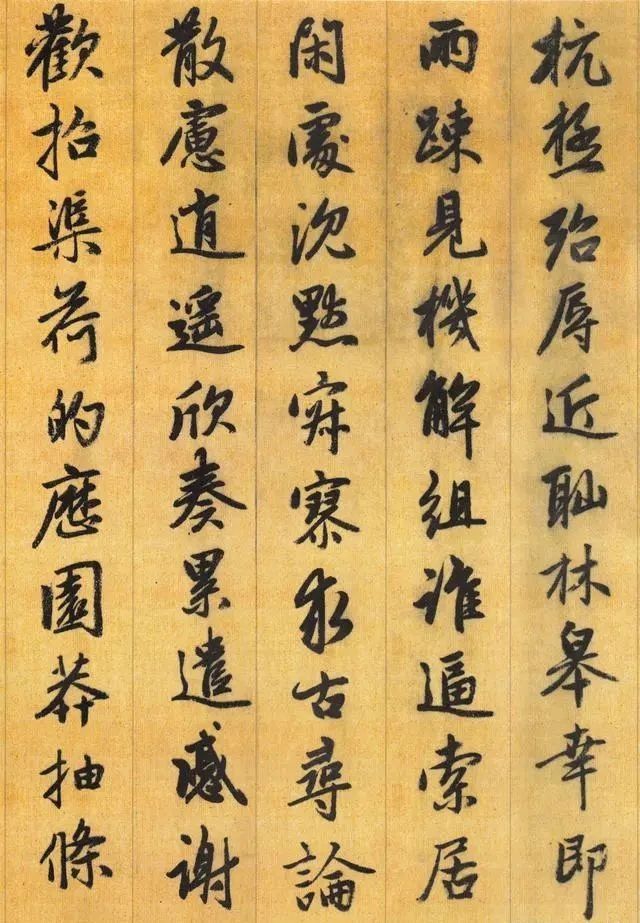 抗極殆辱近恥林皋幸即
兩疎見機解組誰逼索居
閑處沉默寂寥求古尋論
散慮逍遙欣奏累遣慼謝
歡招渠荷的歷園莽抽條